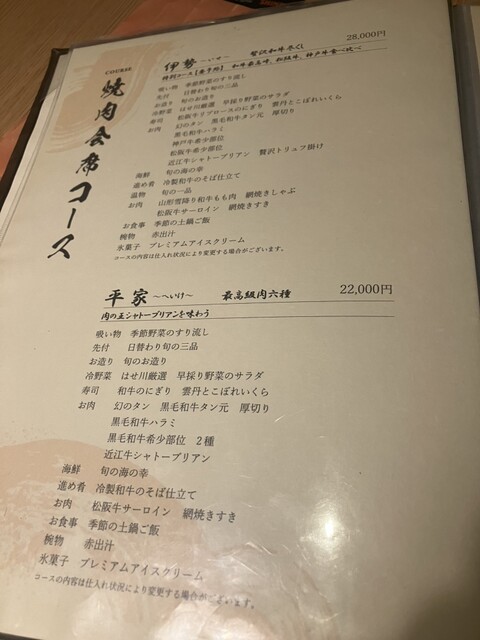 COURSE
焼肉会席コース
伊勢 ～いせ～ 贅沢和牛尽くし 28,000円
特別コース【要予約】 和牛最高峰、松阪牛、神戸牛食べ比べ
吸い物 季節野菜のすり流し
先付 日替わり旬の三品
お造り 旬のお造り
冷野菜 はせ川厳選 早採り野菜のサラダ
寿司 松阪牛リブロースのにぎり 雲丹とこぼれいくら
お肉 幻のタン 黒毛和牛タン元 厚切り
黒毛和牛ハラミ
神戸牛希少部位
松阪牛希少部位
近江牛シャトーブリアン 贅沢トリュフ掛け
海鮮 旬の海の幸
進め肴 冷製和牛のそば仕立て
温物 旬の一品
お肉 山形雪降り和牛もも肉 網焼きしゃぶ
松阪牛サーロイン 網焼きすき
お食事 季節の土鍋ご飯
椀物 赤出汁
氷菓子 プレミアムアイスクリーム
コースの内容は仕入れ状況により変更する場合がございます。
平家 ～へいけ～ 最高級肉六種 22,000円
肉の王シャトーブリアンを味わう
吸い物 季節野菜のすり流し
先付 日替わり旬の三品
お造り 旬のお造り
冷野菜 はせ川厳選 早採り野菜のサラダ
寿司 和牛のにぎり 雲丹とこぼれいくら
お肉 幻のタン 黒毛和牛タン元 厚切り
黒毛和牛ハラミ
黒毛和牛希少部位 2種
近江牛シャトーブリアン
海鮮 旬の海の幸
進め肴 冷製和牛のそば仕立て
お肉 松阪牛サーロイン 網焼きすき
お食事 季節の土鍋ご飯
椀物 赤出汁
氷菓子 プレミアムアイスクリーム
コースの内容は仕入れ状況により変更する場合がございます。